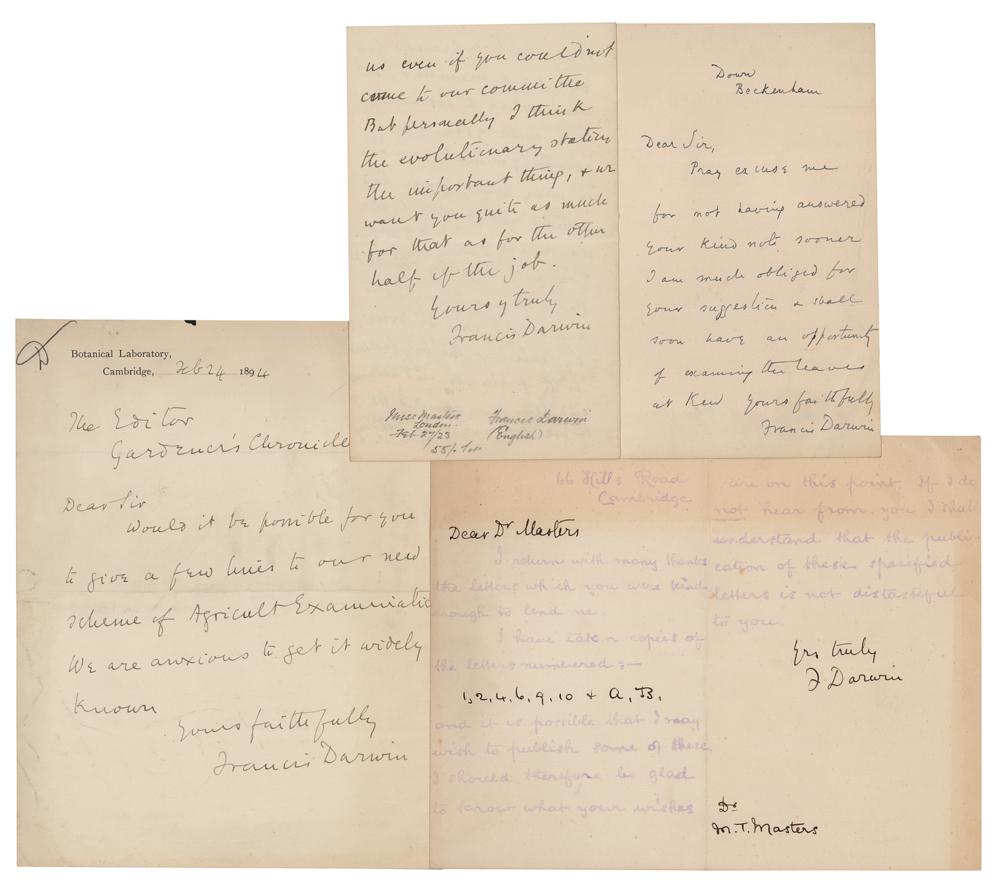 us even if you could not
come to our committee
But personally I think
the evolutionary
the important thing, & we
want you quite as much
for that as for the other
half of the job.
Yours truly
Francis Darwin
Miss Masters
London
Feb 27/23
Francis Darwin
(English)
Down
Beckenham
Dear Sir,
Pray excuse me
for not having answered
your kind note sooner
I am much obliged for
your suggestion & shall
soon have an opportunity
of examining the leaves
at Kew Yours faithfully
Francis Darwin
Botanical Laboratory,
Cambridge, Feb 24 1894
The Editor
Gardener's Chronicle
Dear Sir
Would it be possible for you
to give a few lines to our new
scheme of Agricult Examinatio
We are anxious to get it widely
known
Yours faithfully
Francis Darwin
66 Hills Road
Cambridge
Dear Dr Masters
I return with many thanks
the letters which you were kind
enough to lend me.
I have taken copies of
the letters numbered :-
1, 2, 4, 6, 9, 10 & A, B,
and it is possible that I may
wish to publish some of these,
I should therefore be glad
to know what your wishes
are on this point. If I do
not hear from you I shall
understand that the publi-
cation of these specified
letters is not distasteful
to you.
Yrs truly
F Darwin
Dr
M. T. Masters